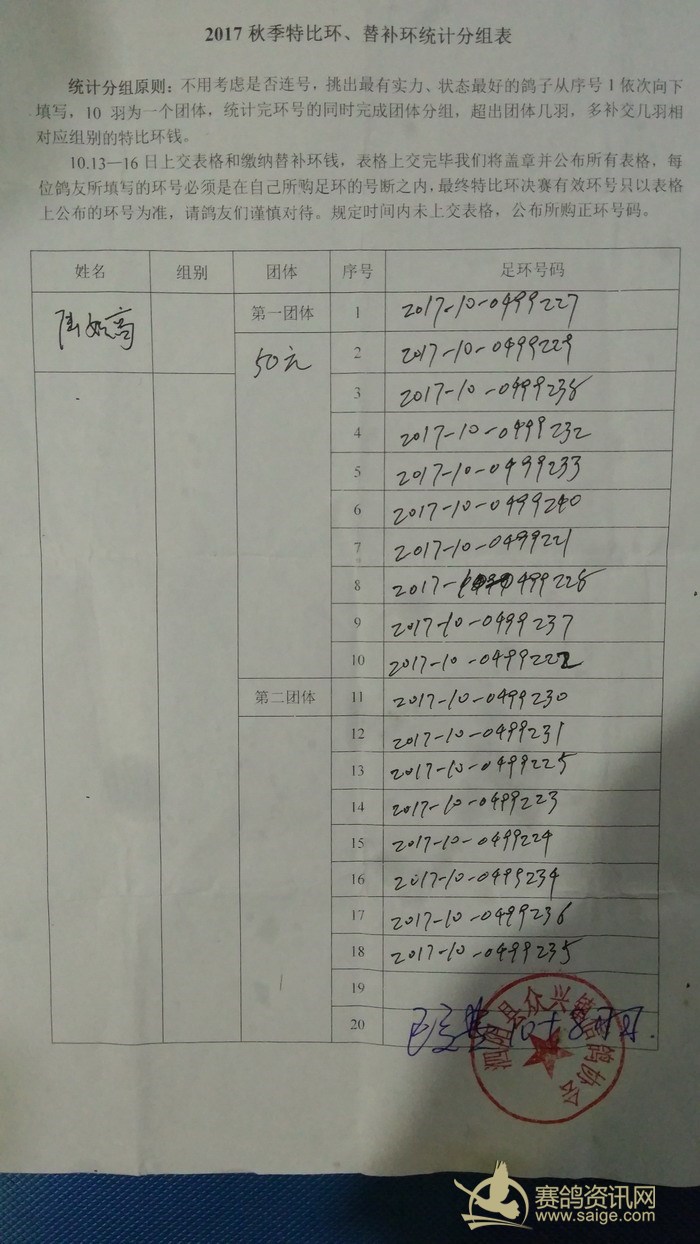 2017 秋季特比环、替补环统计分组表
统计分组原则：不用考虑是否连号，挑出最有实力、状态最好的鸽子从序号 1 依次向下
填写，10 羽为一个团体，统计完环号的同时完成团体分组，超出团体几羽，多补交几羽相
对应组别的特比环钱。
10.13—16 日上交表格和缴纳替补环钱，表格上交完毕我们将盖章并公布所有表格，每
位鸽友所填写的环号必须是在自己所购足环的号断之内，最终特比环决赛有效环号只以表格
上公布的环号为准，请鸽友们谨慎对待。规定时间内未上交表格，公布所购正环号码。
姓名 组别 团体 序号 足环号码
第一团体 1 2017-10-0499227
50元 2 2017-10-0499229
3 2017-10-0499238
4 2017-10-0499232
5 2017-10-0499233
6 2017-10-0499240
7 2017-10-0499221
8 2017-10-0499228
9 2017-10-0499237
10 2017-10-0499222
第二团体 11 2017-10-0499230
12 2017-10-0499231
13 2017-10-0499225
14 2017-10-0499223
15 2017-10-0499224
16 2017-10-0499234
17 2017-10-0499236
18 2017-10-0499235
19
20
县众兴镇信鸽协会
赛鸽资讯网
www.saige.com